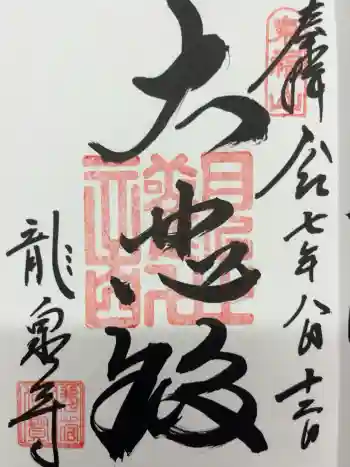 奉拝
令和七年八月十三日
大悲殿
龍泉寺